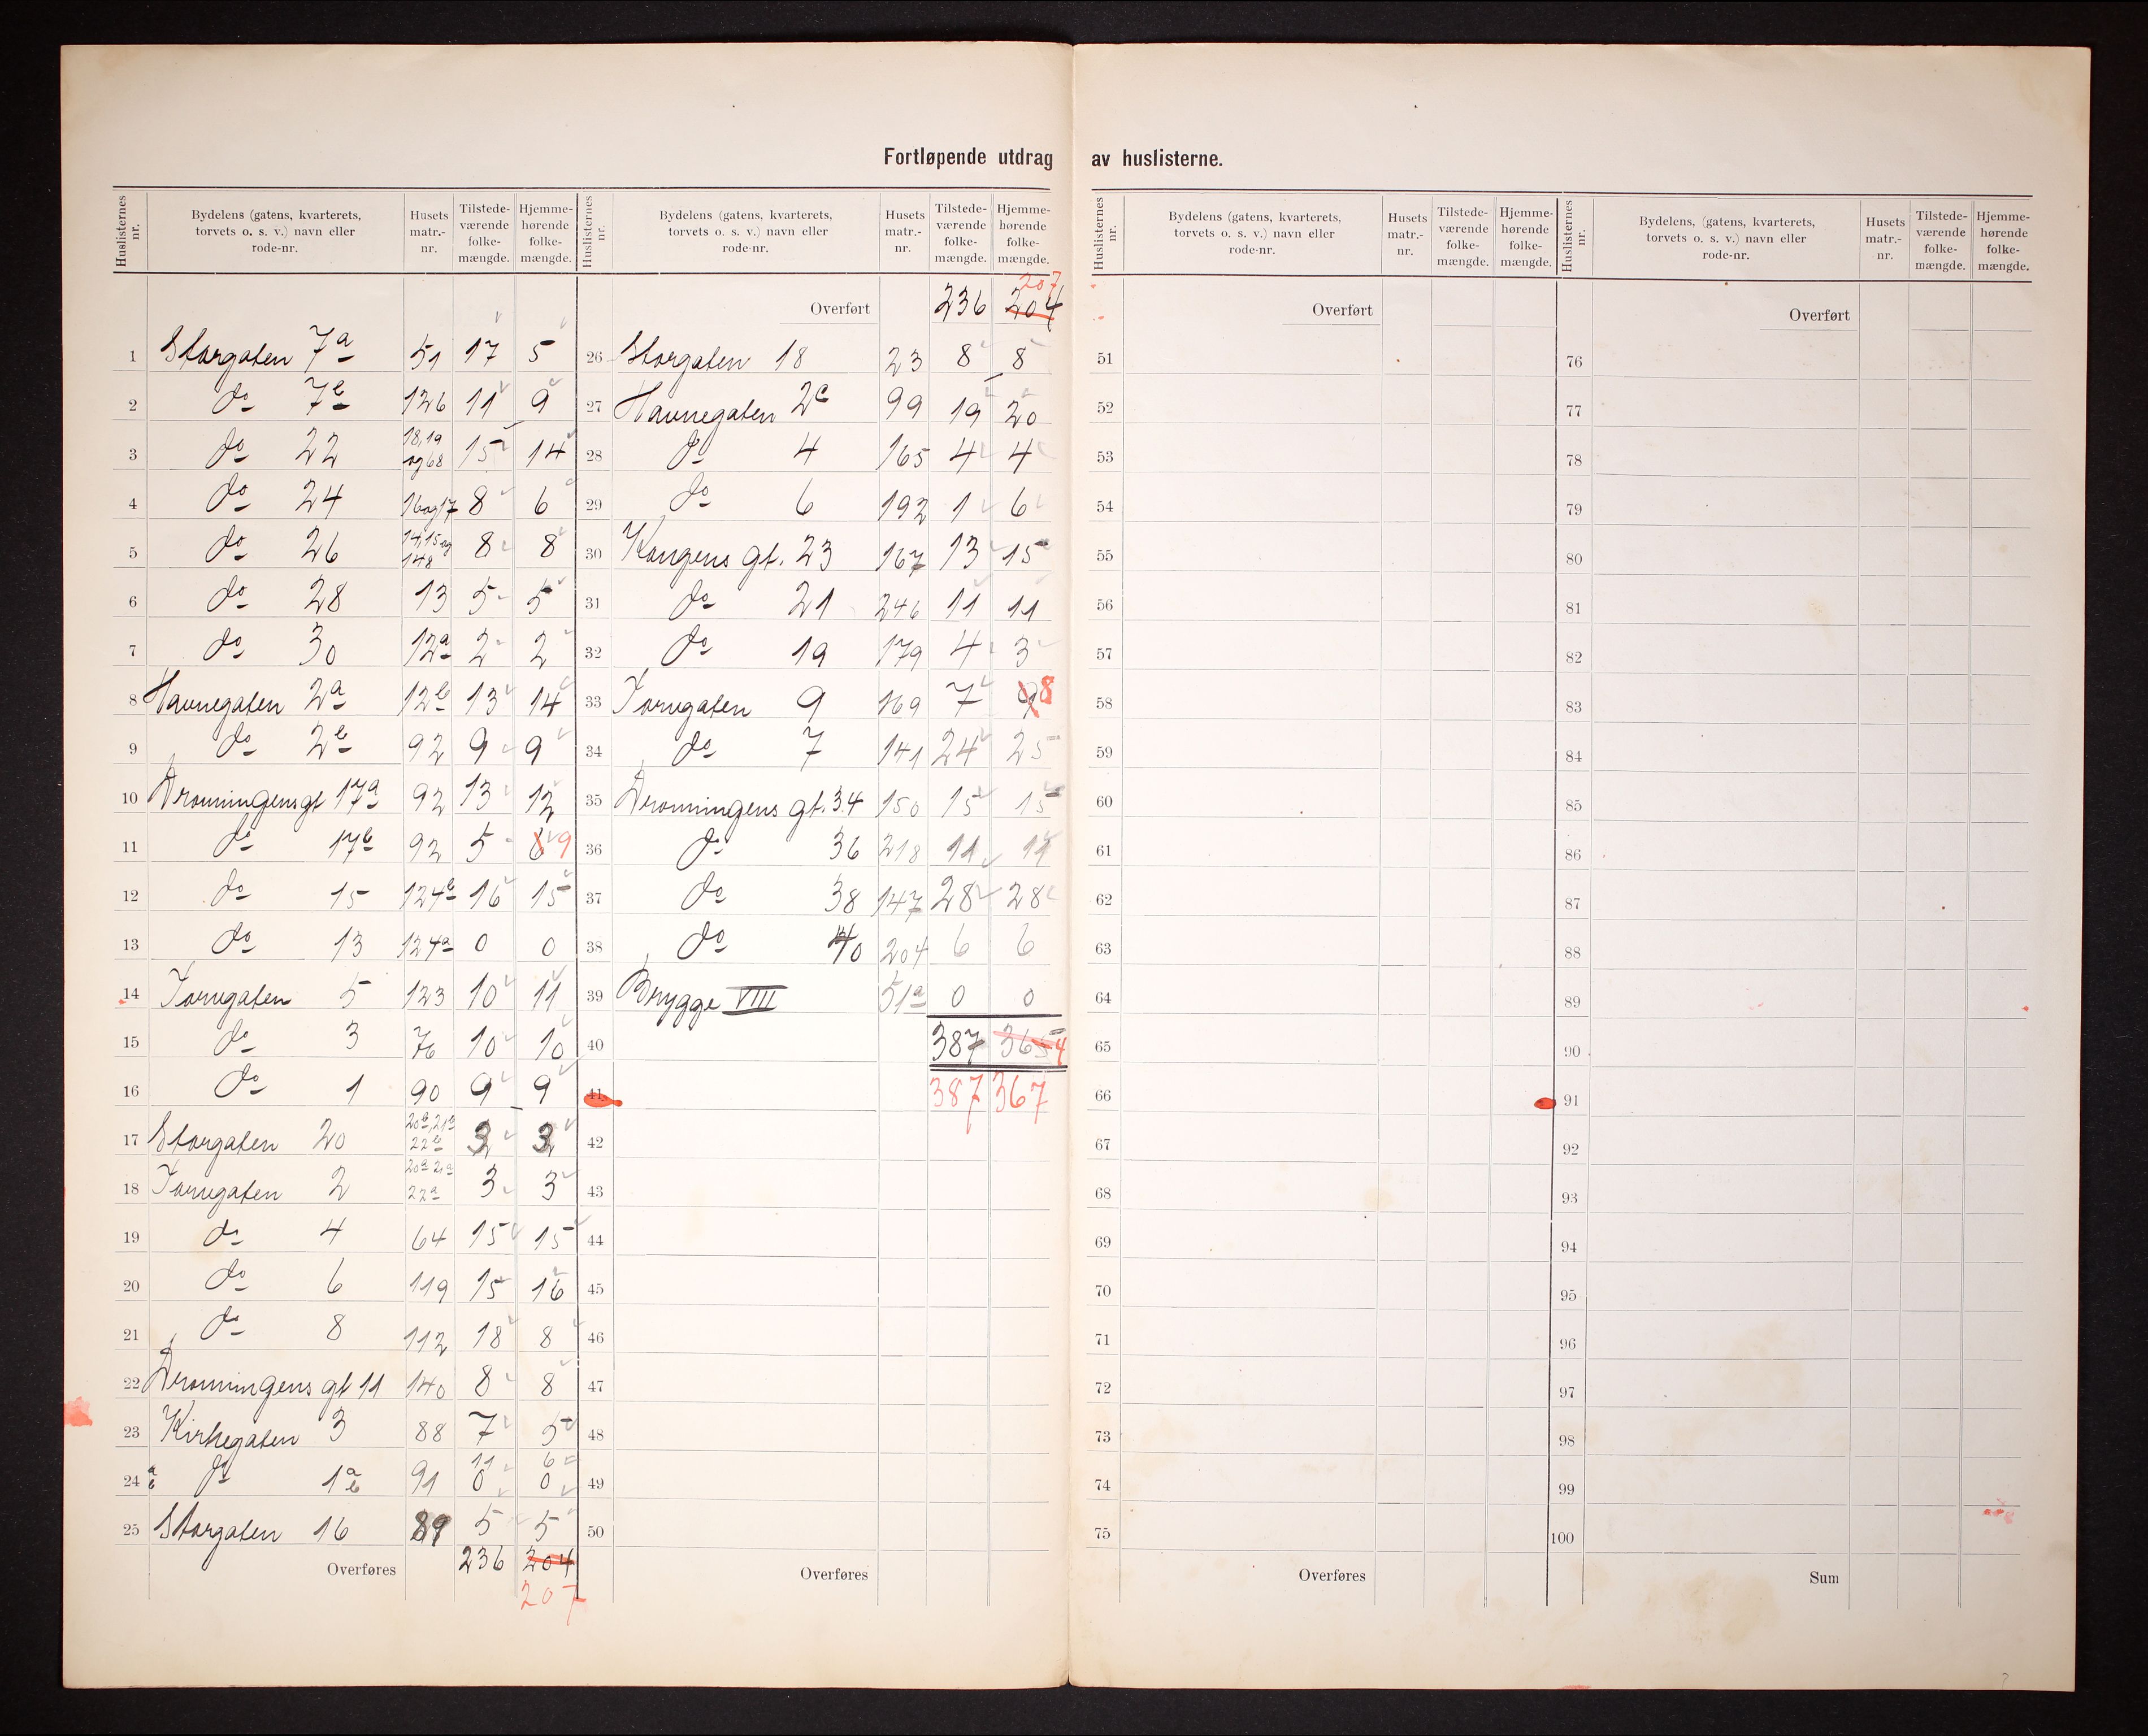 Fortløpende utdrag av huslisterne.
Huslisternes nr. | Bydelens (gatens, kvarterets, torvets o. s. v.) navn eller rode-nr. | Husets matr.-nr. | Tilstede-værende folke-mængde. | Hjemme-hørende folke-mængde.
1 Storgaten 7a 51 17 5
2 do 7b 126 11 9
3 do 22 18,19 og 68 15 14
4 do 24 16 og 17 8 6
5 do 26 14,15 og 148 8 8
6 do 28 13 5 5
7 do 30 12a 2 2
8 Havnegaten 2a 12b 13 14
9 do 2b 92 9 9
10 Dronningens gt 17a 92 13 12
11 do 17b 92 5 8 9
12 do 15 124b 16 15
13 do 13 124a 0 0
14 Torvegaten 5 123 10 11
15 do 3 76 10 10
16 do 1 90 9 9
17 Storgaten 20 20b,21b 22b 3 3
18 Torvegaten 2 20a 21a 22a 3 3
19 do 4 64 15 15
20 do 6 119 15 16
21 do 8 112 18 8
22 Dronningens gt 11 140 8 8
23 Kirkegaten 3 88 7 5
24 a b do 1 a b 91 11 0 6 0
25 Storgaten 16 89 5 5
Overføres 236 204
207
Huslisternes nr. | Bydelens (gatens, kvarterets, torvets o. s. v.) navn eller rode-nr. | Husets matr.-nr. | Tilstede-værende folke-mængde. | Hjemme-hørende folke-mængde.
207
Overført 236 204
26 Storgaten 18 23 8 8
27 Havnegaten 2c 99 19 20
28 do 4 165 4 4
29 do 6 192 1 6
30 Kongens gt. 23 167 13 15
31 do 21 246 11 11
32 do 19 179 4 3
33 Torvgaten 9 169 7 9 8
34 do 7 141 24 25
35 Dronningens gt. 34 150 15 15
36 do 36 218 11 11
37 do 38 147 28 28
38 do 40 204 6 6
39 Brygge VIII 51a 0 0
40 387 365 4
41 387 367
42
43
44
45
46
47
48
49
50
Overføres
Huslisternes nr. | Bydelens (gatens, kvarterets, torvets o. s. v.) navn eller rode-nr. | Husets matr.-nr. | Tilstede-værende folke-mængde. | Hjemme-hørende folke-mængde.
Overført
51
52
53
54
55
56
57
58
59
60
61
62
63
64
65
66
67
68
69
70
71
72
73
74
75
Overføres
Huslisternes nr. | Bydelens, (gatens, kvarterets, torvets o. s. v.) navn eller rode-nr. | Husets matr.-nr. | Tilstede-værende folke-mængde. | Hjemme-hørende folke-mængde.
Overført
76
77
78
79
80
81
82
83
84
85
86
87
88
89
90
91
92
93
94
95
96
97
98
99
100
Sum